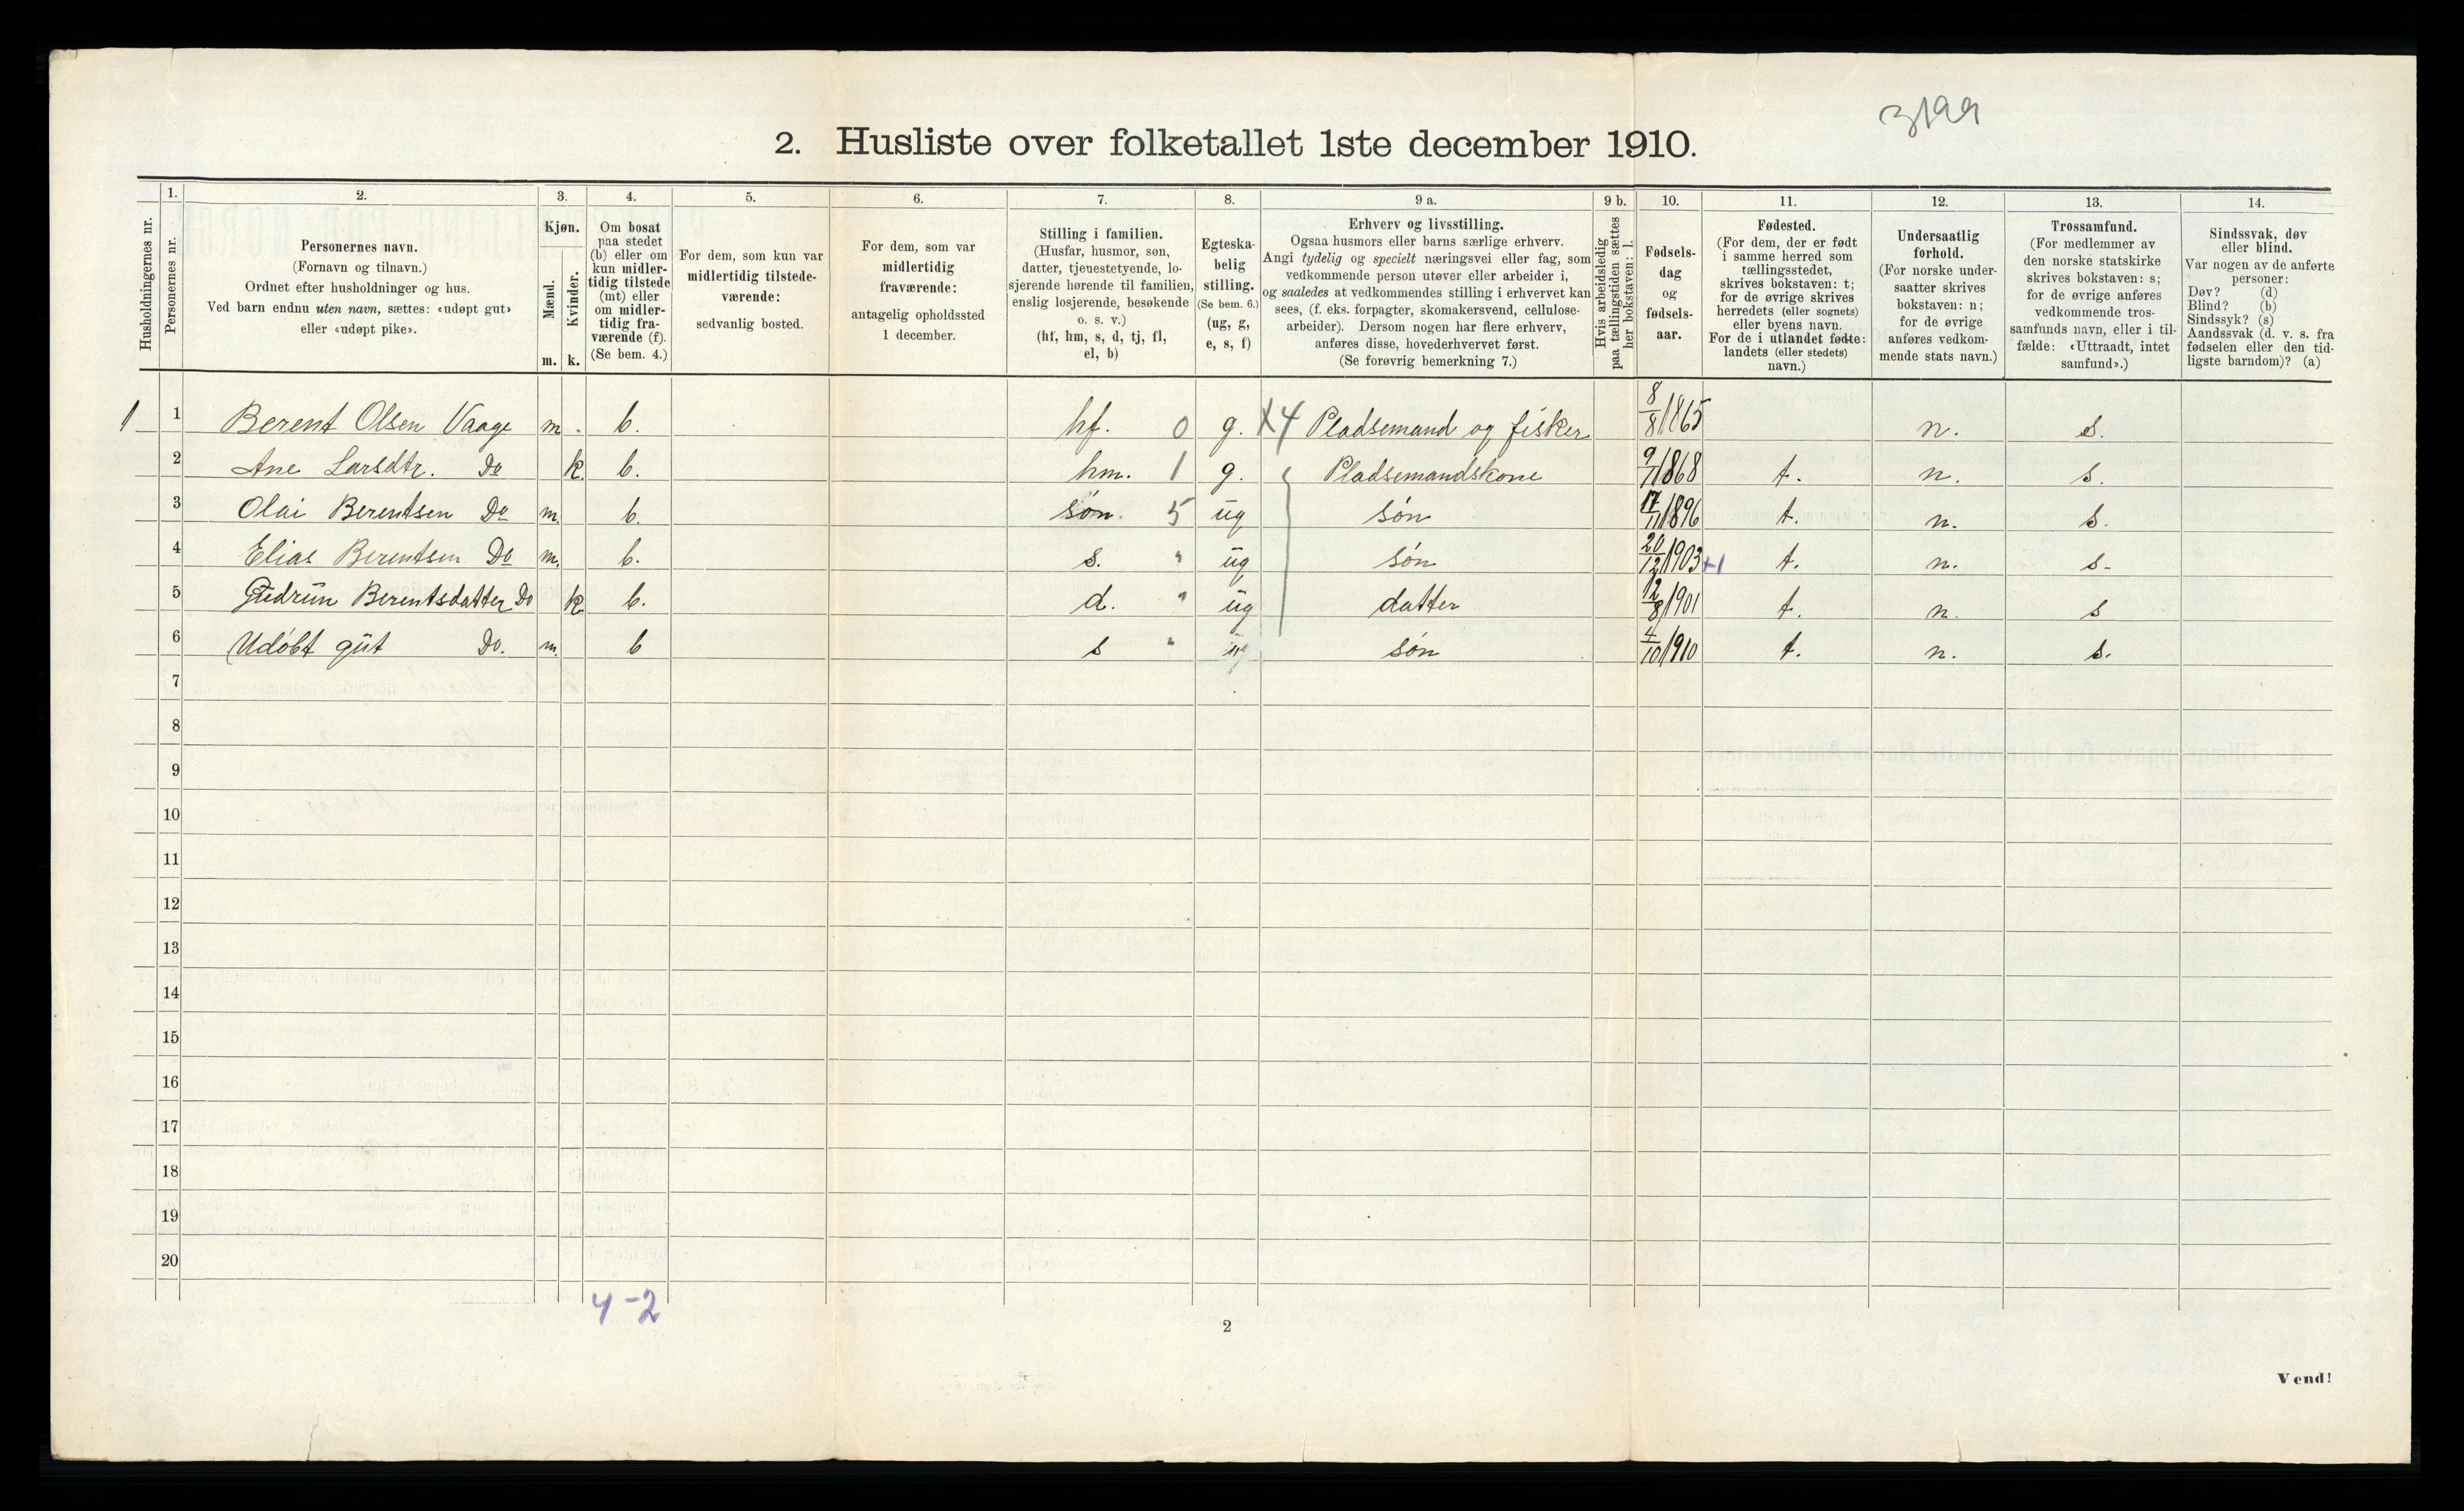 3199
2. Husliste over folketallet 1ste december 1910.
Husholdningernes nr.
1.
Personernes nr.
2.
Personernes navn.
(Fornavn og tilnavn.)
Ordnet efter husholdninger og hus.
Ved barn endnu uten navn, sættes: «udøpt gut»
eller «udøpt pike».
3.
Kjøn.
Mænd.
Kvinder.
m. k.
4.
Om bosat
paa stedet
(b) eller om
kun midler-
tidig tilstede
(mt) eller
om midler-
tidig fra-
værende (f).
(Se bem. 4.)
5.
For dem, som kun var
midlertidig tilstede-
værende:
sedvanlig bosted.
6.
For dem, som var
midlertidig
fraværende:
antagelig opholdssted
1 december.
7.
Stilling i familien.
(Husfar, husmor, søn,
datter, tjenestetyende, lo-
sjerende hørende til familien,
enslig losjerende, besøkende
o. s. v.)
(hf, hm, s, d, tj, fl,
el, b)
8.
Egteska-
belig
stilling.
(Se bem. 6.)
(ug, g,
e, s, f)
9 a.
Erhverv og livsstilling.
Ogsaa husmors eller barns særlige erhverv.
Angi tydelig og specielt næringsvei eller fag, som
vedkommende person utøver eller arbeider i,
og saaledes at vedkommendes stilling i erhvervet kan
sees, (f. eks. forpagter, skomakersvend, cellulose-
arbeider). Dersom nogen har flere erhverv,
anføres disse, hovederhvervet først.
(Se forøvrig bemerkning 7.)
9 b.
Hvis arbeidsledig
paa tællingstiden sættes
her bokstaven: l.
10.
Fødsels-
dag
og
fødsels-
aar.
11.
Fødested.
(For dem, der er født
i samme herred som
tællingsstedet,
skrives bokstaven: t;
for de øvrige skrives
herredets (eller sognets)
eller byens navn.
For de i utlandet fødte:
landets (eller stedets)
navn.)
12.
Undersaatlig
forhold.
(For norske under-
saatter skrives
bokstaven: n;
for de øvrige
anføres vedkom-
mende stats navn.)
13.
Trossamfund.
(For medlemmer av
den norske statskirke
skrives bokstaven: s;
for de øvrige anføres
vedkommende tros-
samfunds navn, eller i til-
fælde: «Uttraadt, intet
samfund».)
14.
Sindssvak, døv
eller blind.
Var nogen av de anførte
personer:
Døv? (d)
Blind? (b)
Sindssyk? (s)
Aandssvak (d. v. s. fra
fødselen eller den tid-
ligste barndom)? (a)
1 1 Berent Olsen Vaage m. b. hf. 0 g. X4 Pladsemand og fisker 8/8 1865 n. s.
2 Ane Larsdtr. Do k. b. hm. 1 g. Pladsemandskone 9/7 1868 t. n. s.
3 Olai Berentsen Do m. b. søn. 5 ug søn 17/11 1896 t. n. s.
4 Elias Berentsen Do m. b. s. " ug søn 20/12 1903 +1 t. n. s.
5 Gudrun Berentsdatter Do k b. d. " ug datter 12/8 1901 t. n. s
6 Udøbt gut Do. m. b s " ug søn 4/10 1910 t. n. s.
7
8
9
10
11
12
13
14
15
16
17
18
19
20
4-2
2
Vend!